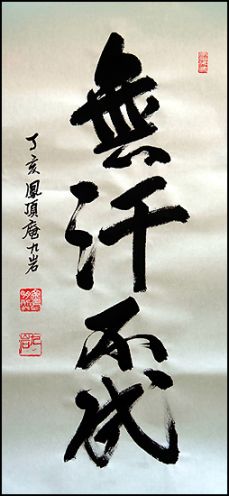 無汗不成
丁亥 鳳頂庵 九岩